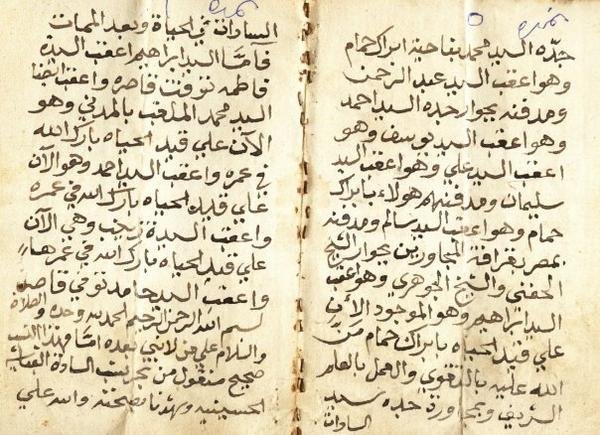 نمره ٥
جده السيد محمد بناحية ابراك حمام
وهو اعقب السيد عبد الرحمن
ومدفنه بجوار جده السيد احمد
وهو اعقب السيد يوسف وهو
اعقب السيد علي وهو اعقب السيد
سليمان ومدفنهم هولاء بابراك
حمام وهو اعقب السيد سالم ومدفنه
بمصر بقرافة المجاورين بجوار الشيخ
الحفني والشيخ الجوهري وهو اعقب
السيد ابراهيم وهو الموجود الآن
علي قيد الحياه بابراك حمام من
الله عليه بالتقوي والعمل بالعلم
الشريف وبمجاورة جده سيد
السادات
نمره
السادات في الحياة وبعد الممات
فأما السيد ابراهيم اعقب السيدة
فاطمه توفت قاصره واعقب ايضا
السيد محمد الملقب بالمدني وهو
الآن علي قيد الحياه بارك الله
في عمره واعقب السيد احمد وهو الآن
علي قيد الحياه بارك الله في عمره
واعقب السيدة زينب وهي الآن
علي قيد الحياه بارك الله في عمرها
واعقب السيد حامد توفي قاصر
بسم الله الرحمن الرحيم الحمد لله وحده والصلاة
والسلام علي من لا نبي بعده اما فهذا النسب
صحيح منقول من بحر نسب السادة
الحسينيه وشهدنا بصحته والله علي